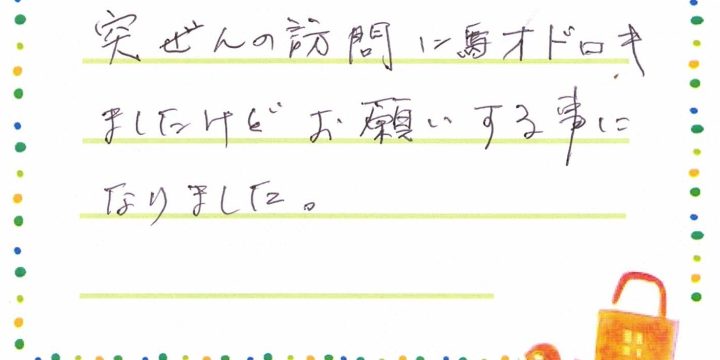 突ぜんの訪問に馬オドロキ
ましたけど お願いする事に
なりました。